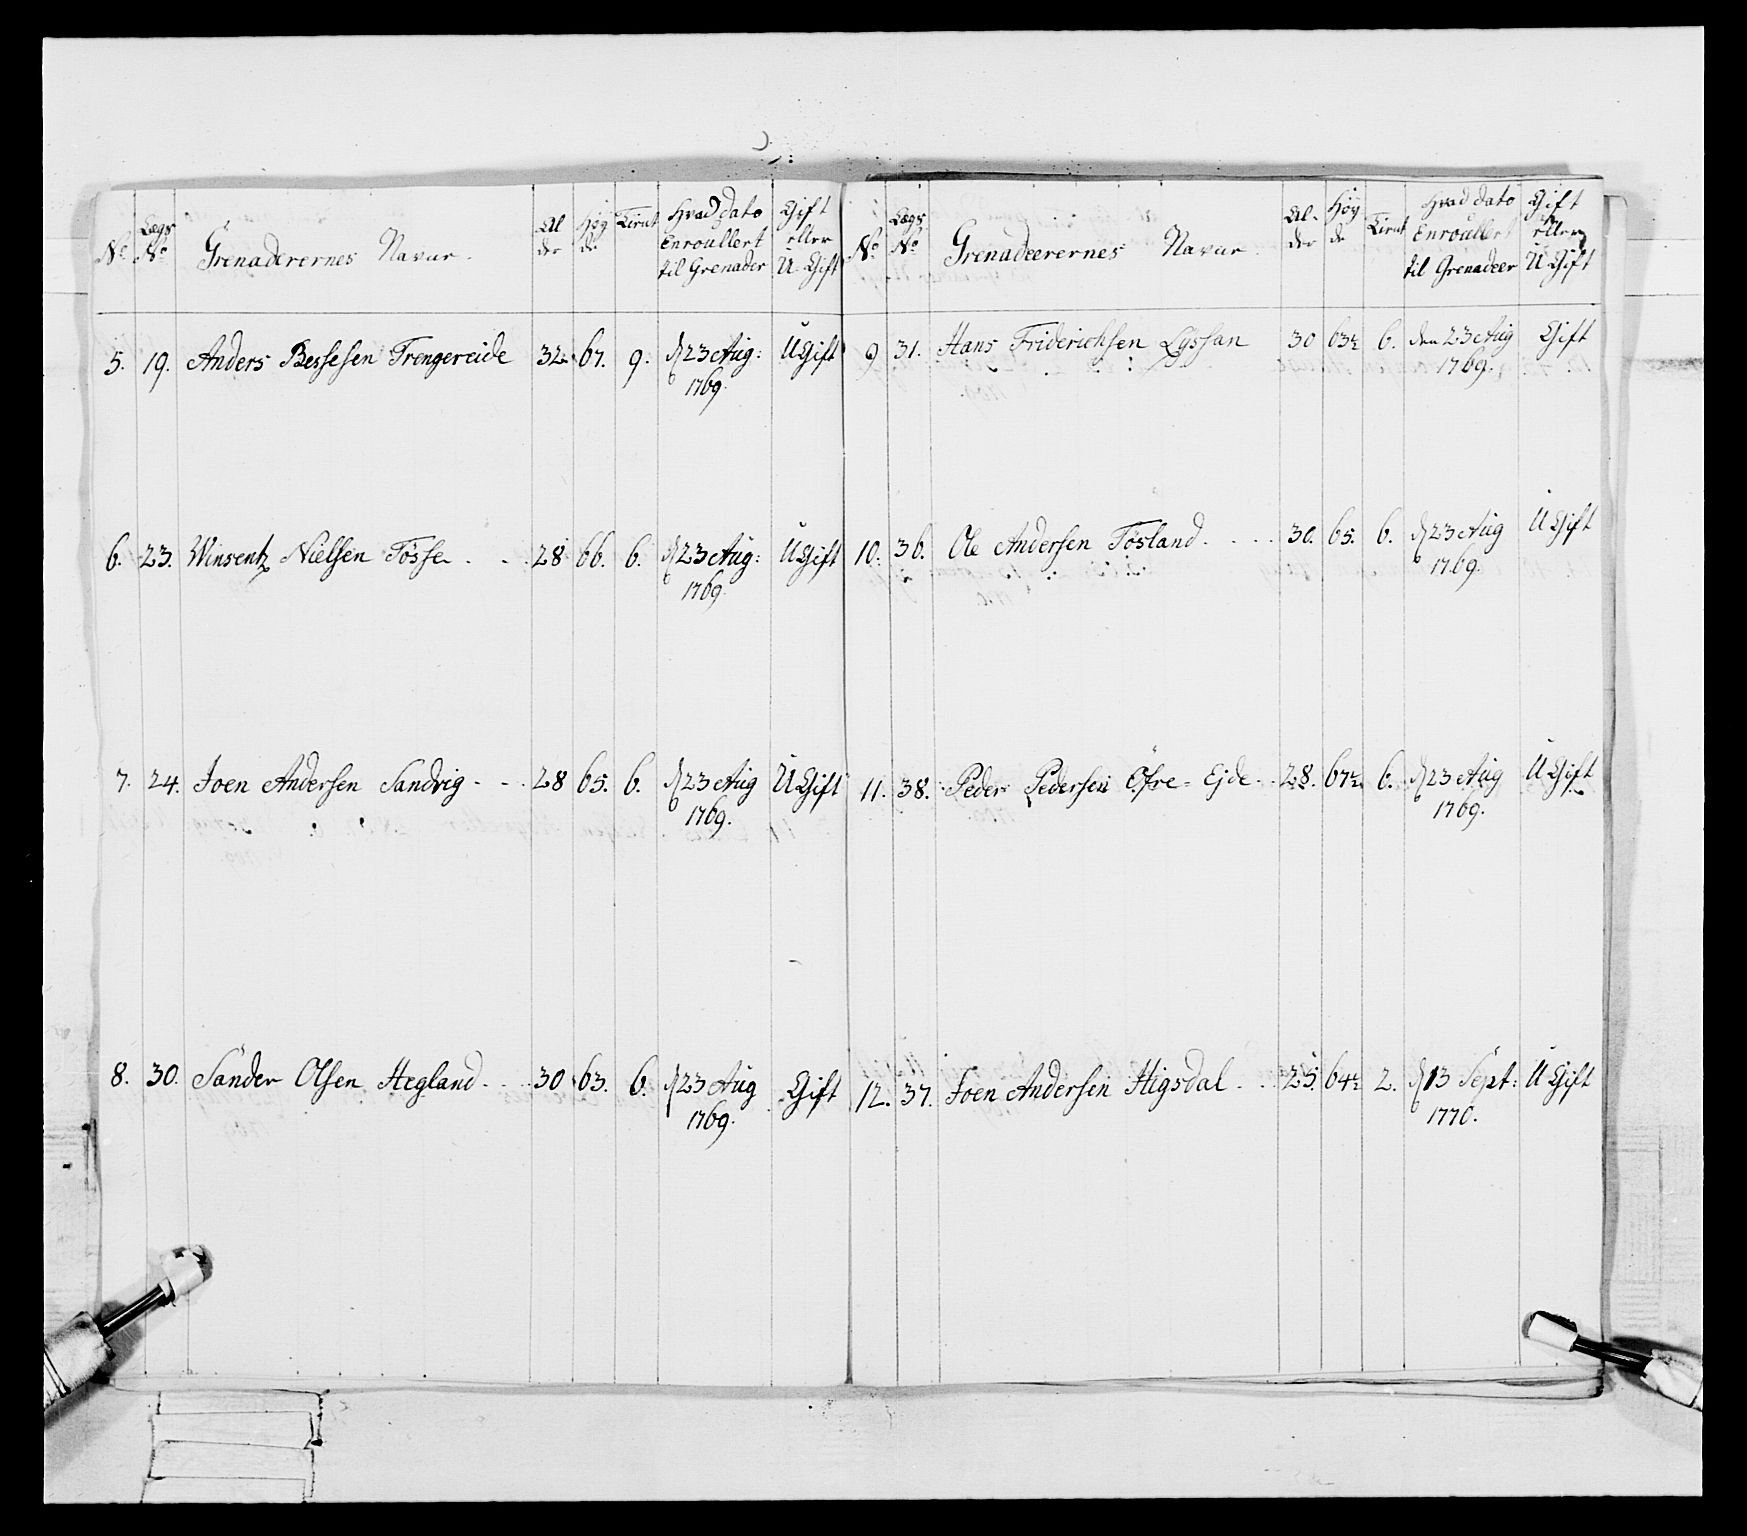 No Lægs No Grenaderernes Navne. Alder Høyde Tient Hvad dato Enroullert til Grenader Gift eller U Gift
5. 19. Anders Bessesen Trengereide 32 67. 9. d 23 Aug: 1769 U Gift
6. 23. Winsentz Nielsen Tösse . . . 28 66. 6. d 23 Aug: 1769. U Gift
7. 24. Joen Andersen Sandvig - - . 28 65. 6. d 23 Aug 1769. U Gift
8. 30. Sander Olsen Hegland . . . 30 63. 6. d 23 Aug 1769. Gift
No Lægs No Grenadeerernes Navne Alder Høyde Tient Hvad dato Enroullert til Grenadeer Gift eller U Gift
9 31. Hans Friderichsen 30 63½ 6. den 23 Aug 1769. Gift
10. 36. Ole Andersen Tösland . . . . 30. 65. 6. d 23 Aug 1769. U Gift
11. 38. Peder Pedersen Öfre-Ejde . . 28. 67½ 6. d 23 Aug 1769. U Gift
12. 37. Joen Andersen Higsdal . . 25. 64½ 2. d 13 Sept: 1770. U Gift